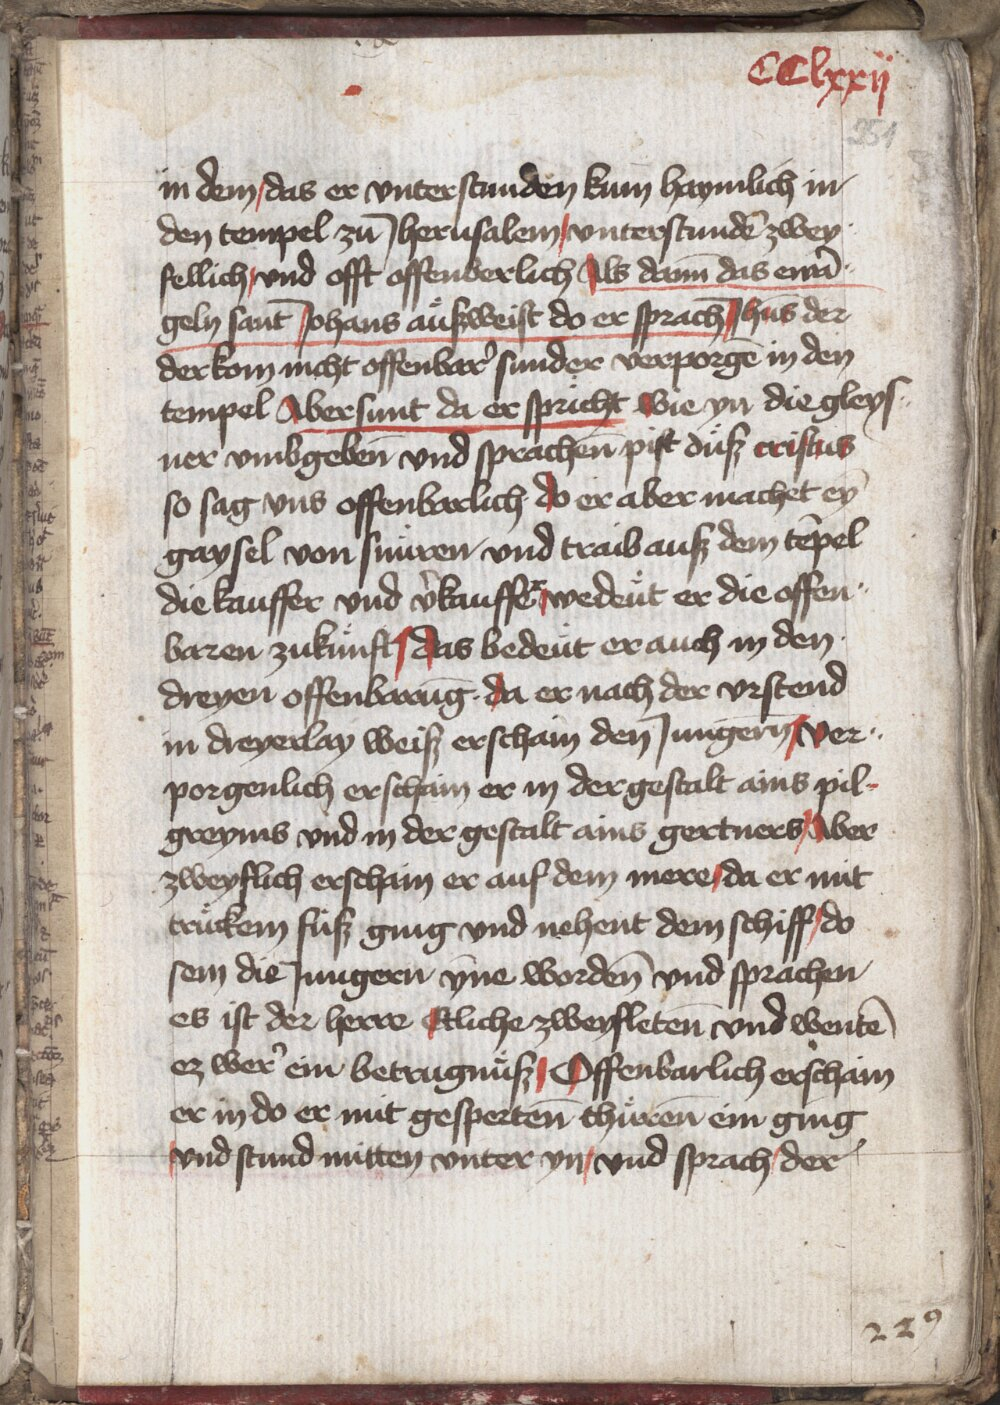 CClxxij
251
in dem das er vnterstunden kum haymlich in
den tempel zū Jherusalem vnterstundē zwey
fellich vnd offt offenberlich Als dann das ewā
geln sant Johans aůßweist do er sprach Jhūs der
der kom nicht offenbar sunder verporgē in den
tempel Aber sunt da er spricht Wie yn die gleys
ner vmbgeben vnd sprachen pist důß cristus
so sag vns offenbarlich do er aber machet eȳ
gaysel von snüren vnd traib auß dem tēpel
die kauffer vnd v̄kauffer wedeůt er die offen
baren zukůnft Das bedeůt er auch in den
dreyen offenbarūg da er nach der vrstend
in dreyerlay weiß erschain den Jungern Ver
porgenlich erschain er in der gestalt ains pil
greyms vnd in der gestalt ains gertners Aber
zweyflich erschain er auf dem mere da er mit
trůckem fůß ging vnd nehent dem schiff do
sein die Jungern ȳne worden vnd sprachen
es ist der herre Etliche zweyfleten vnd wentē
ez wer ein betrugnůß Offenbarlich erschain
er in do er mit gesperten thůren ein ging
vnd stund mitten vnter yn vnd sprach der
229